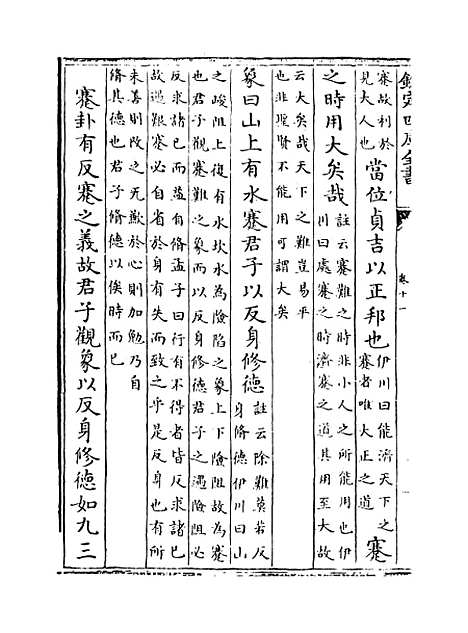 欽定四庫全書
卷十一
蹇故利於
見大人也
當位貞吉以正邦也
伊川曰能濟天下之
蹇者唯大正之道
蹇
之時用大矣哉
註云蹇難之時非小人之所能用也伊
川曰處蹇之時濟蹇之道其用至大故
云大矣哉天下之難豈易平
也非聖賢不能用可謂大矣
象曰山上有水蹇君子以反身修德
註云除難莫若反
身脩德伊川曰山
之峻阻上復有水坎水為險陷之象上下險阻故為蹇
也君子觀蹇難之象而以反身修德君子之遇險阻必
反求諸己而益自脩孟子曰行有不得者皆反求諸己
故遇艱蹇必自省於身有失而致之乎是反身也有所
未善則改之无歉於心則加勉乃自
脩其德也君子脩德以俟時而已
蹇卦有反蹇之義故君子觀象以反身修德如九三